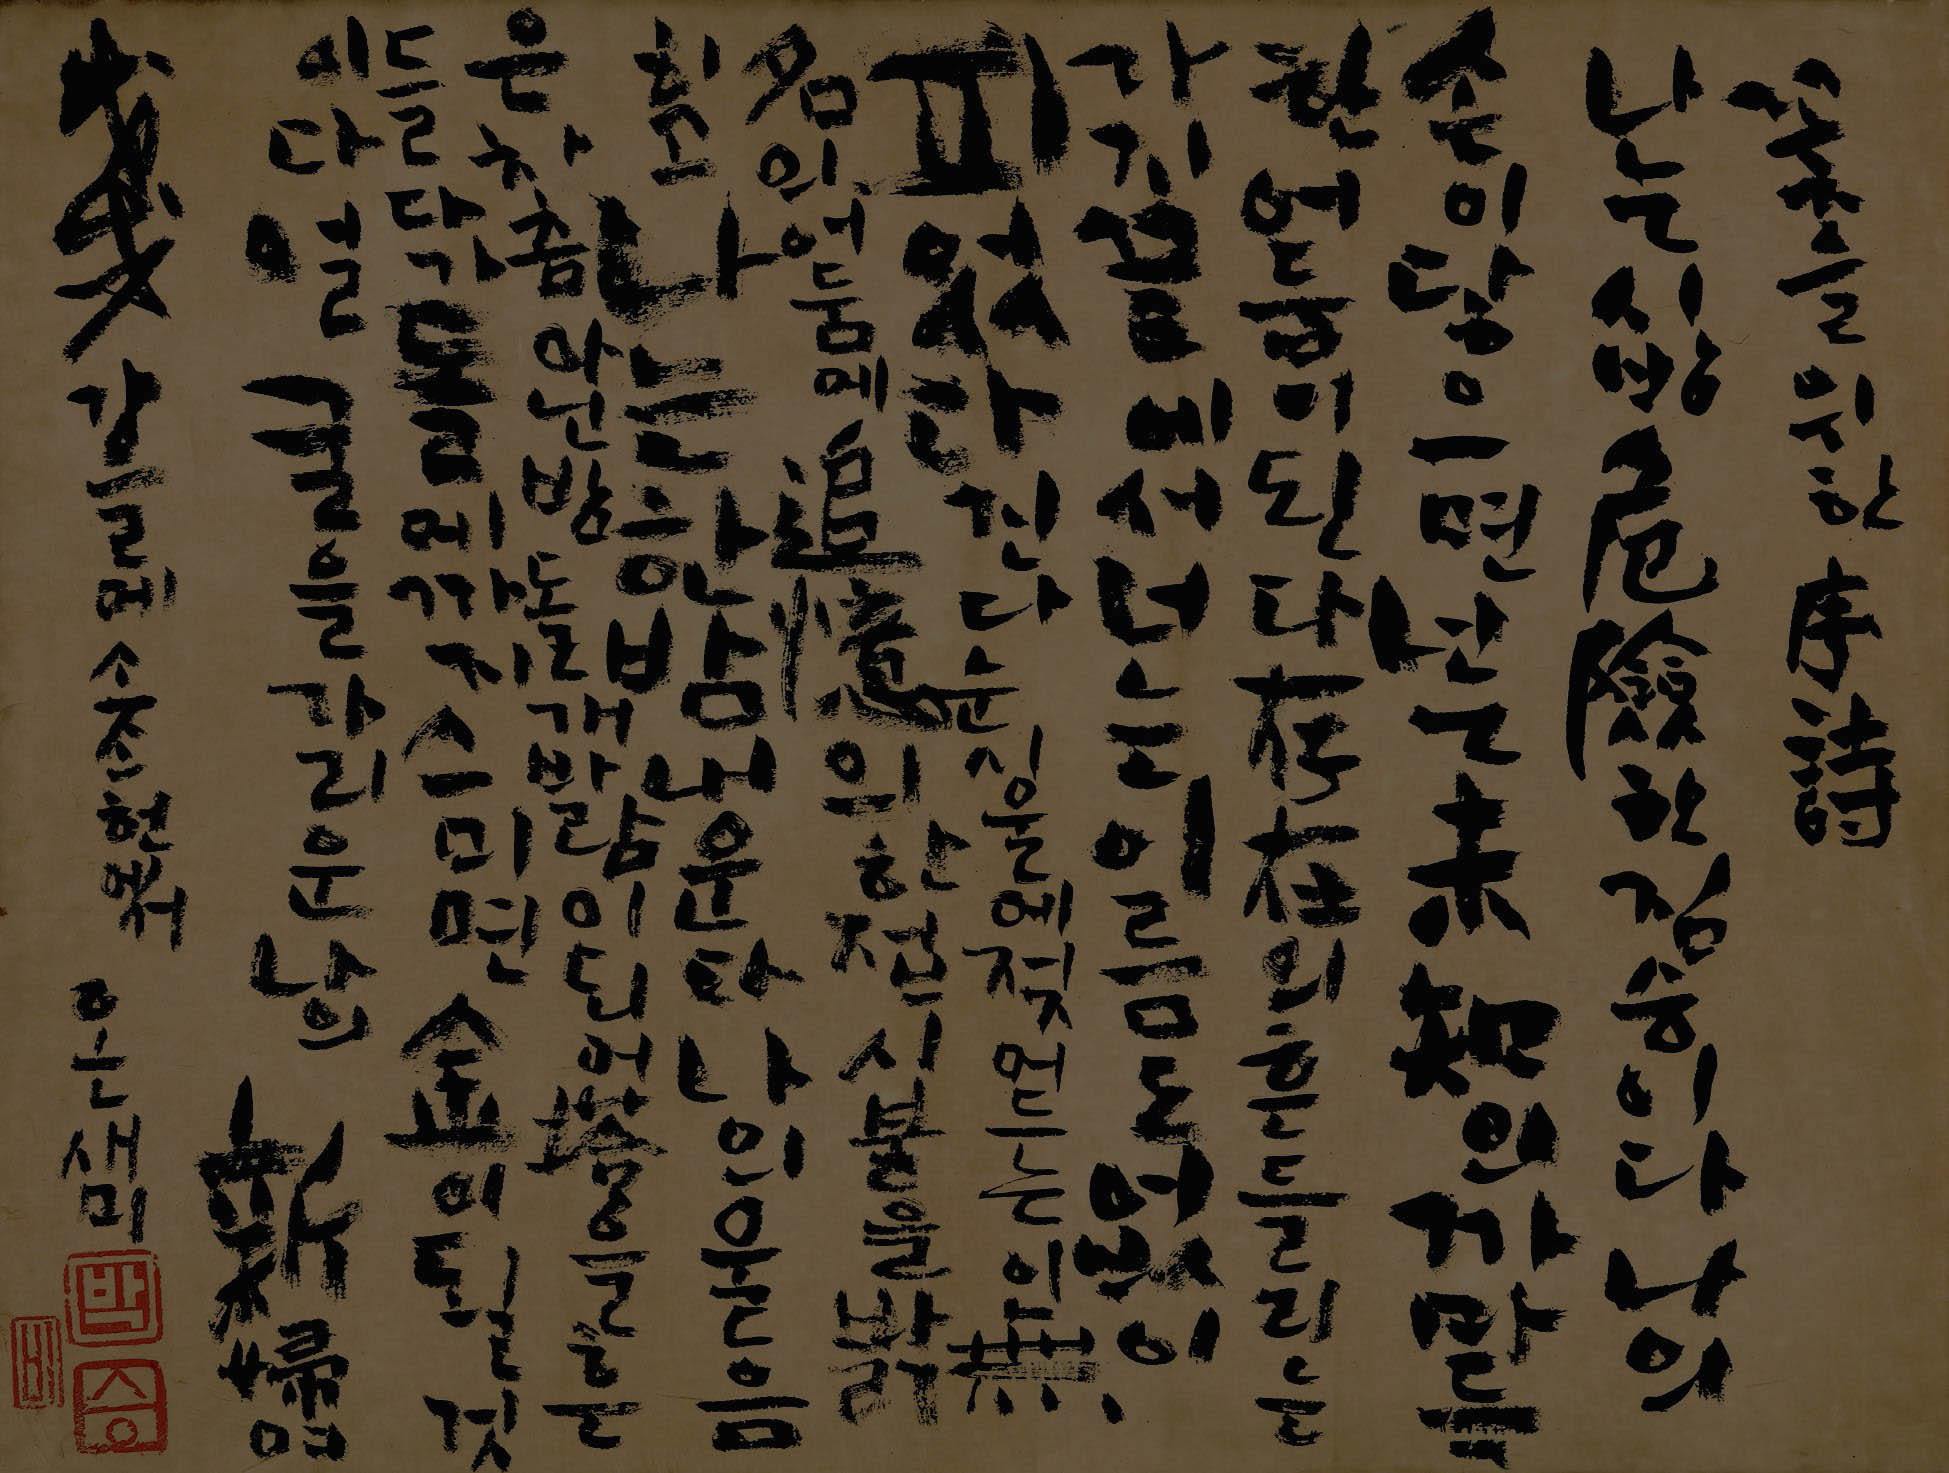 꽃을위한序詩
나는시방危險한짐승이다나의
손이닿으면너는未知의까마득
한어둠이된다存在의흔들리는
가지끝에서너는이름도없이
피었다진다눈시울에젖어드는이無
名의어둠에追憶의한접시불을밝
히고나는한밤내운다나의울음
은차츰아닌밤돌개바람이되어塔을흔
들다가돌에까지스미면金이될것
이다얼굴을가리운나의新婦여
戊戌 오는새미
박승